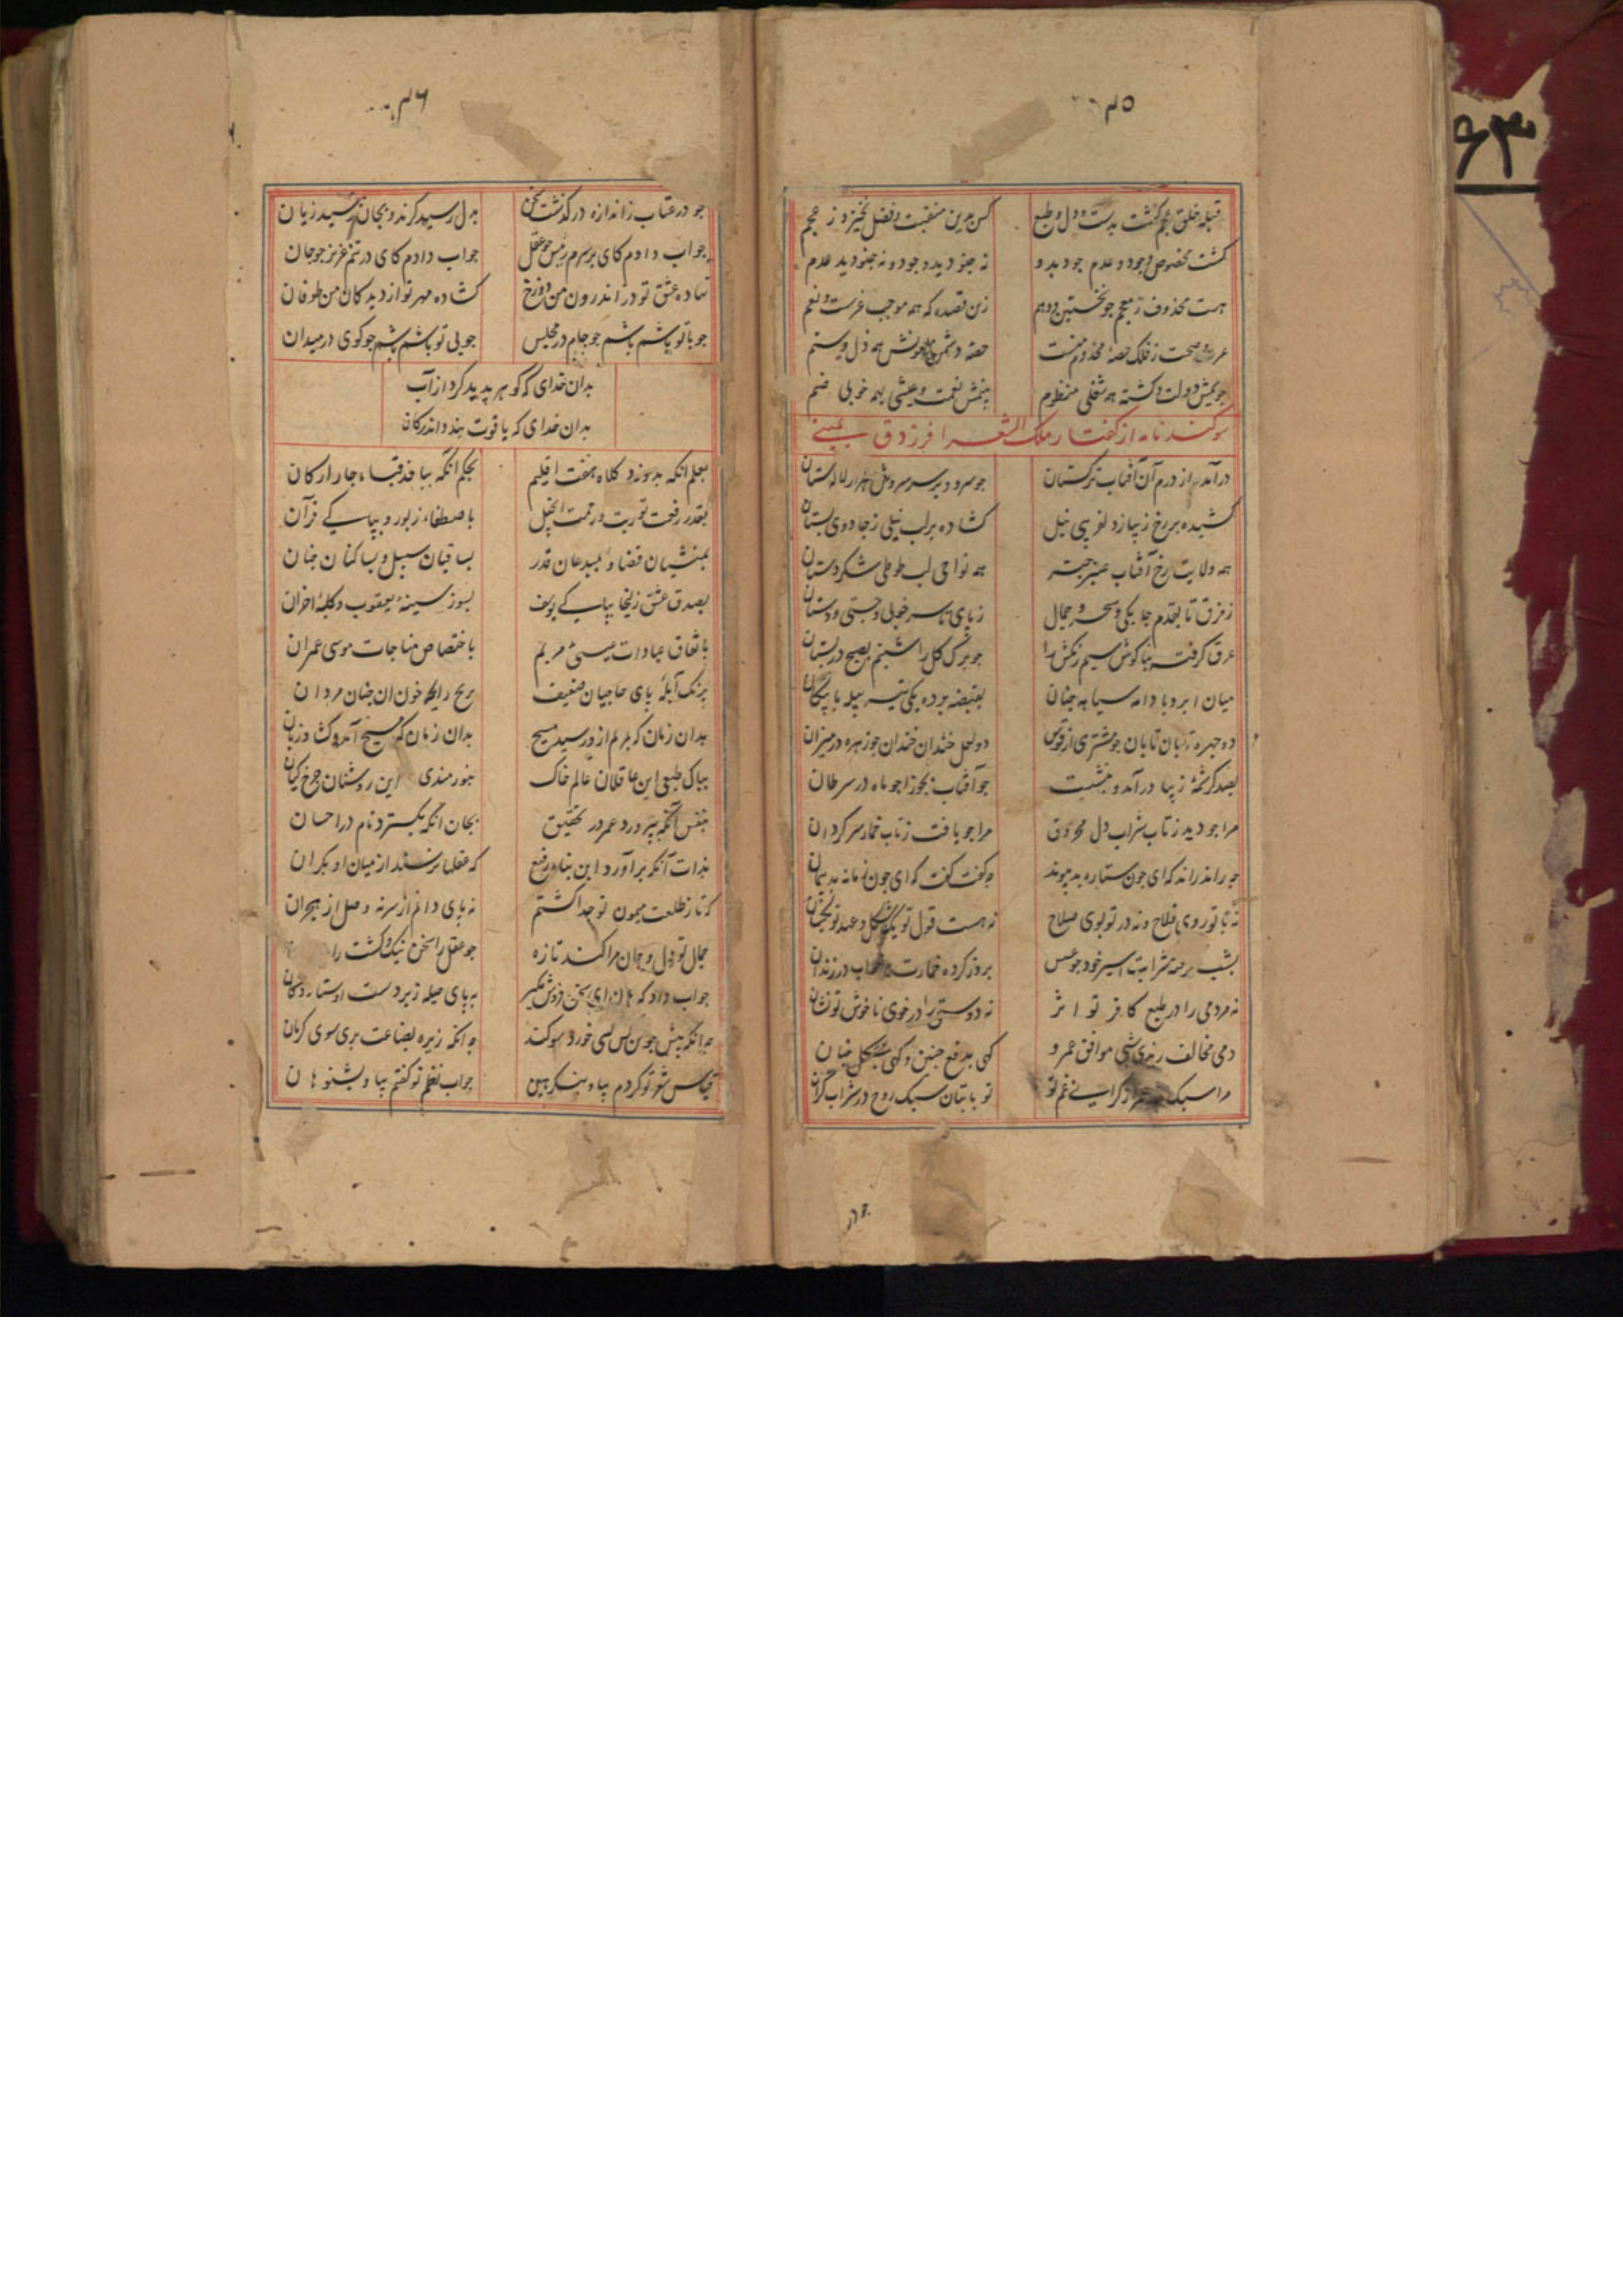 ۴۵
قبله خلق عجم گشت بدست و دل و طبع کس بدین منقبت و فضل نخیزد ز عجم
گشت مخصوص وجود و عدم جود بدو نه چنو دید وجود و نه چنو دید عدم
هست محذوف ز معجم چو نخستین دهم زین قصیده که همه موجب غرست و نعم
عز و صحت ز فلک حصه مخدوم منست حصه دشمن همه ذل و ستم
دولت و گشته همه شغلی منظوم نعمت و عیشی بهمه خوبی ضم
سوکند نامه از کفتار ملک الشعرا فرزدق
درآمد از درم آن آفتاب ترکستان جو سرو و بر سر سروش هزار لالستان
کشیده بر رخ زیبا ز دلفریبی نیل کشاده بر لب نیلی ز جادوی بستان
همه ولایت رخ آفتاب عنبر چتر همه نواحی لب طوطی شکر دستان
ز فرق تا بقدم چابکی و سحر و جمال ز پای تا سر خوبی و چستی و دستان
عرق گرفته بناکوش سیم رنکش را جو برک کل را شبنم بصبح در بستان
میان ابرو بادامه سیاه چنان بقبضه برده یکی تیر بیله با پیکان
دو چهره تابان تابان جو مشتری از قوس دو لعل خندان خندان جو زهره در میزان
بصد کرشمه زیبا درآمد و بنشست جو آفتاب بجوزا جو ماه در سرطان
مرا جو دید ز تاب شراب دل محروق مرا جو یافت ز تاب خمار سر کردان
چه راند راند که ای جون ستاره بد پیوند چه کفت کفت که ای جون زمانه بد پیمان
نه با تو روی فلاح و نه در تو بوی صلاح نه هست قول تو یکشکل و عهد تو یکسان
بشب شرابت اسیر خود جو عسس بروز کرده خمارت در زندان
نه مردمی را در طبع کافر تو اثر نه دوستی را در خوی ناخوش تو نشان
دمی مخالف زیدی شبی موافق عمرو کهی بدفع چنین و کهی بشکل چنان
مرا سبک غم تو تو با بتان سبک روح در شراب گران
۴۶
جو در عتاب ز اندازه درکذشت سخن بدل رسید گزند و بجان رسید زیان
جواب دادم کای بر سرم رئیس جو عقل جواب دادم کای در تنم عزیز جو جان
نهاده عشق تو در اندرون من دوزخ کشاده مهر تو از دیدکان من طوفان
جو با تو باشم باشم جو جام در مجلس جو بی تو باشم باشم جو کوی در میدان
بدان خدای که کوهر پدید کرد از آب
بدان خدای که یاقوت بندد اندر کان
بعلم انکه بدوزد کلاه هفت اقلیم بحکم انکه ببافد قباء چار ارکان
بقدر رفعت توریت و رحمت انجیل باصطفاء زبور و بپاکی قرآن
بمنشیان قضا و بمبدعان قدر بساقیان سبیل و بساکنان جنان
بصدق عشق زلیخا بپاکی یوسف بسوز سینه یعقوب و کلبه احزان
باتفاق عبادات عیسی مریم باختصاص مناجات موسی عمران
برنک آبله پای حاجیان ضعیف بریح رایحه خون آن جنان مردان
بدان زمان که بمریم از او رسید مسیح بدان زمان که مسیح آمد و کشاد زبان
بپاک طبعی این عاقلان عالم خاک بنورمندی این روشنان چرخ کیان
بنفس آنکه بپرورد عمر در تحقیق بجان انکه بکسترد نام در احسان
بذات آنکه برآورد این بناء رفیع که عقلها نرسند از میان او بکران
که تا ز طلعت میمون تو جدا کشتم نه پای دانم از سر نه وصل از هجران
جمال تو دل و جان مرا کند تازه جو عقل را سخن نیک و کشت را
جواب داد که هان ای سخن فروش مکیر به پای حیله زبردست اوستا دکان
چه انکه پیش جو من کس کسی خورد سوکند چه انکه زیره بضاعت بری سوی کرمان
قیاس شو تو کردم بیا و بنکر هین جواب نظم تو کفتم بیا و بشنو هان
۶۳